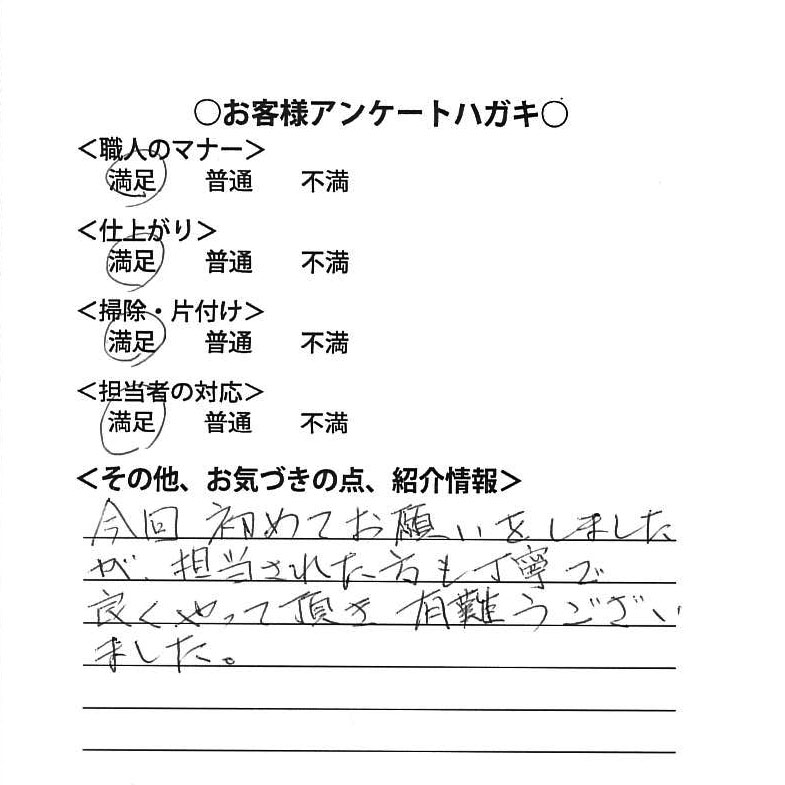 ○お客様アンケートハガキ○
＜職人のマナー＞
満足　普通　不満
＜仕上がり＞
満足　普通　不満
＜掃除・片付け＞
満足　普通　不満
＜担当者の対応＞
満足　普通　不満
＜その他、お気づきの点、紹介情報＞
今回 初めてお願いをしました
が、担当された方も丁寧で
良くやって頂き 有難うござい
ました。